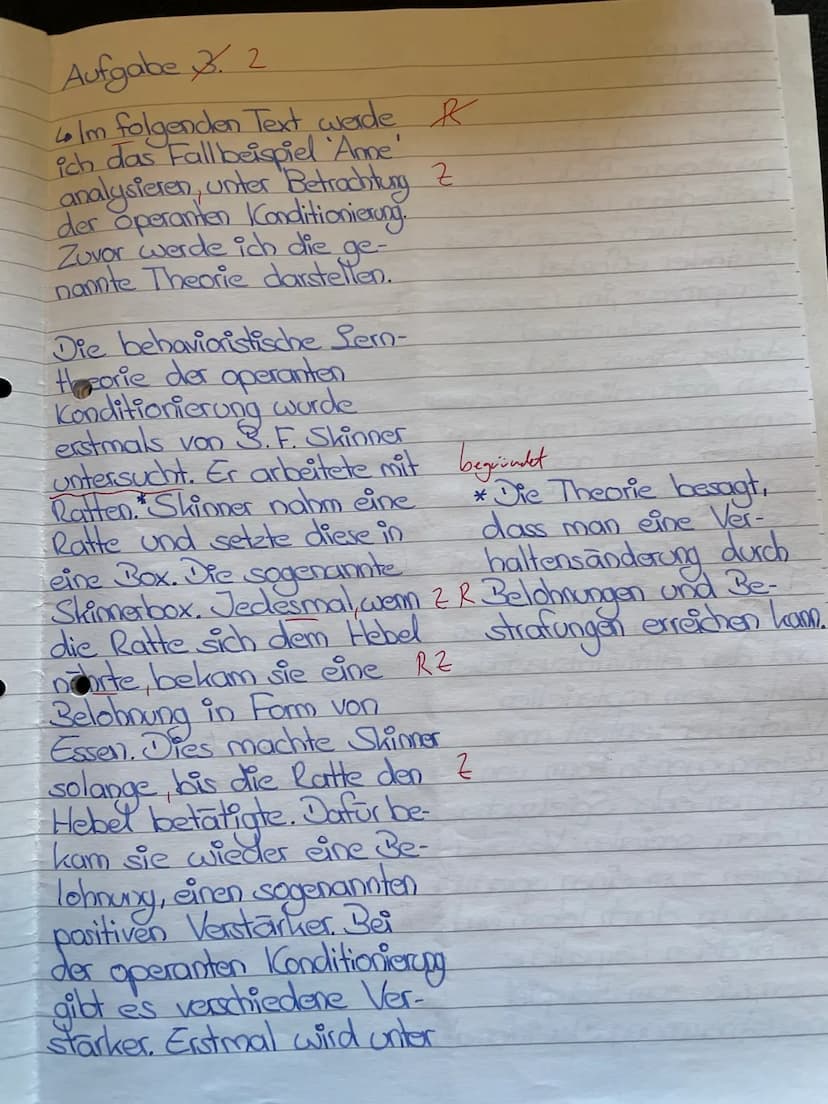 Aufgabe 3. 2
↳ Im folgenden Text werde R
ich das Fallbeispiel 'Anne'
analysieren, unter Betrachtung Z
der operanten Konditionierung.
Zuvor werde ich die ge-
nannte Theorie darstellen.
Die behavioristische Lern-
theorie der operanten
Konditionierung wurde
erstmals von B. F. Skinner
untersucht. Er arbeitete mit
Ratten.* Skinner nahm eine
Ratte und setzte diese in
eine Box. Die sogenannte
Skinnerbox. Jedesmal, wenn Z R
die Ratte sich dem Hebel
nährte, bekam sie eine R Z
Belohnung in Form von
Essen. Dies machte Skinner
solange, bis die Ratte den Z
Hebel betätigte. Dafür be-
kam sie wieder eine Be-
lohnung, einen sogenannten
positiven Verstärker. Bei
der operanten Konditionierung
gibt es verschiedene Ver-
stärker. Erstmal wird unter
begründet
* Die Theorie besagt,
dass man eine Ver-
haltensänderung durch
Belohnungen und Be-
strafungen erreichen kann.